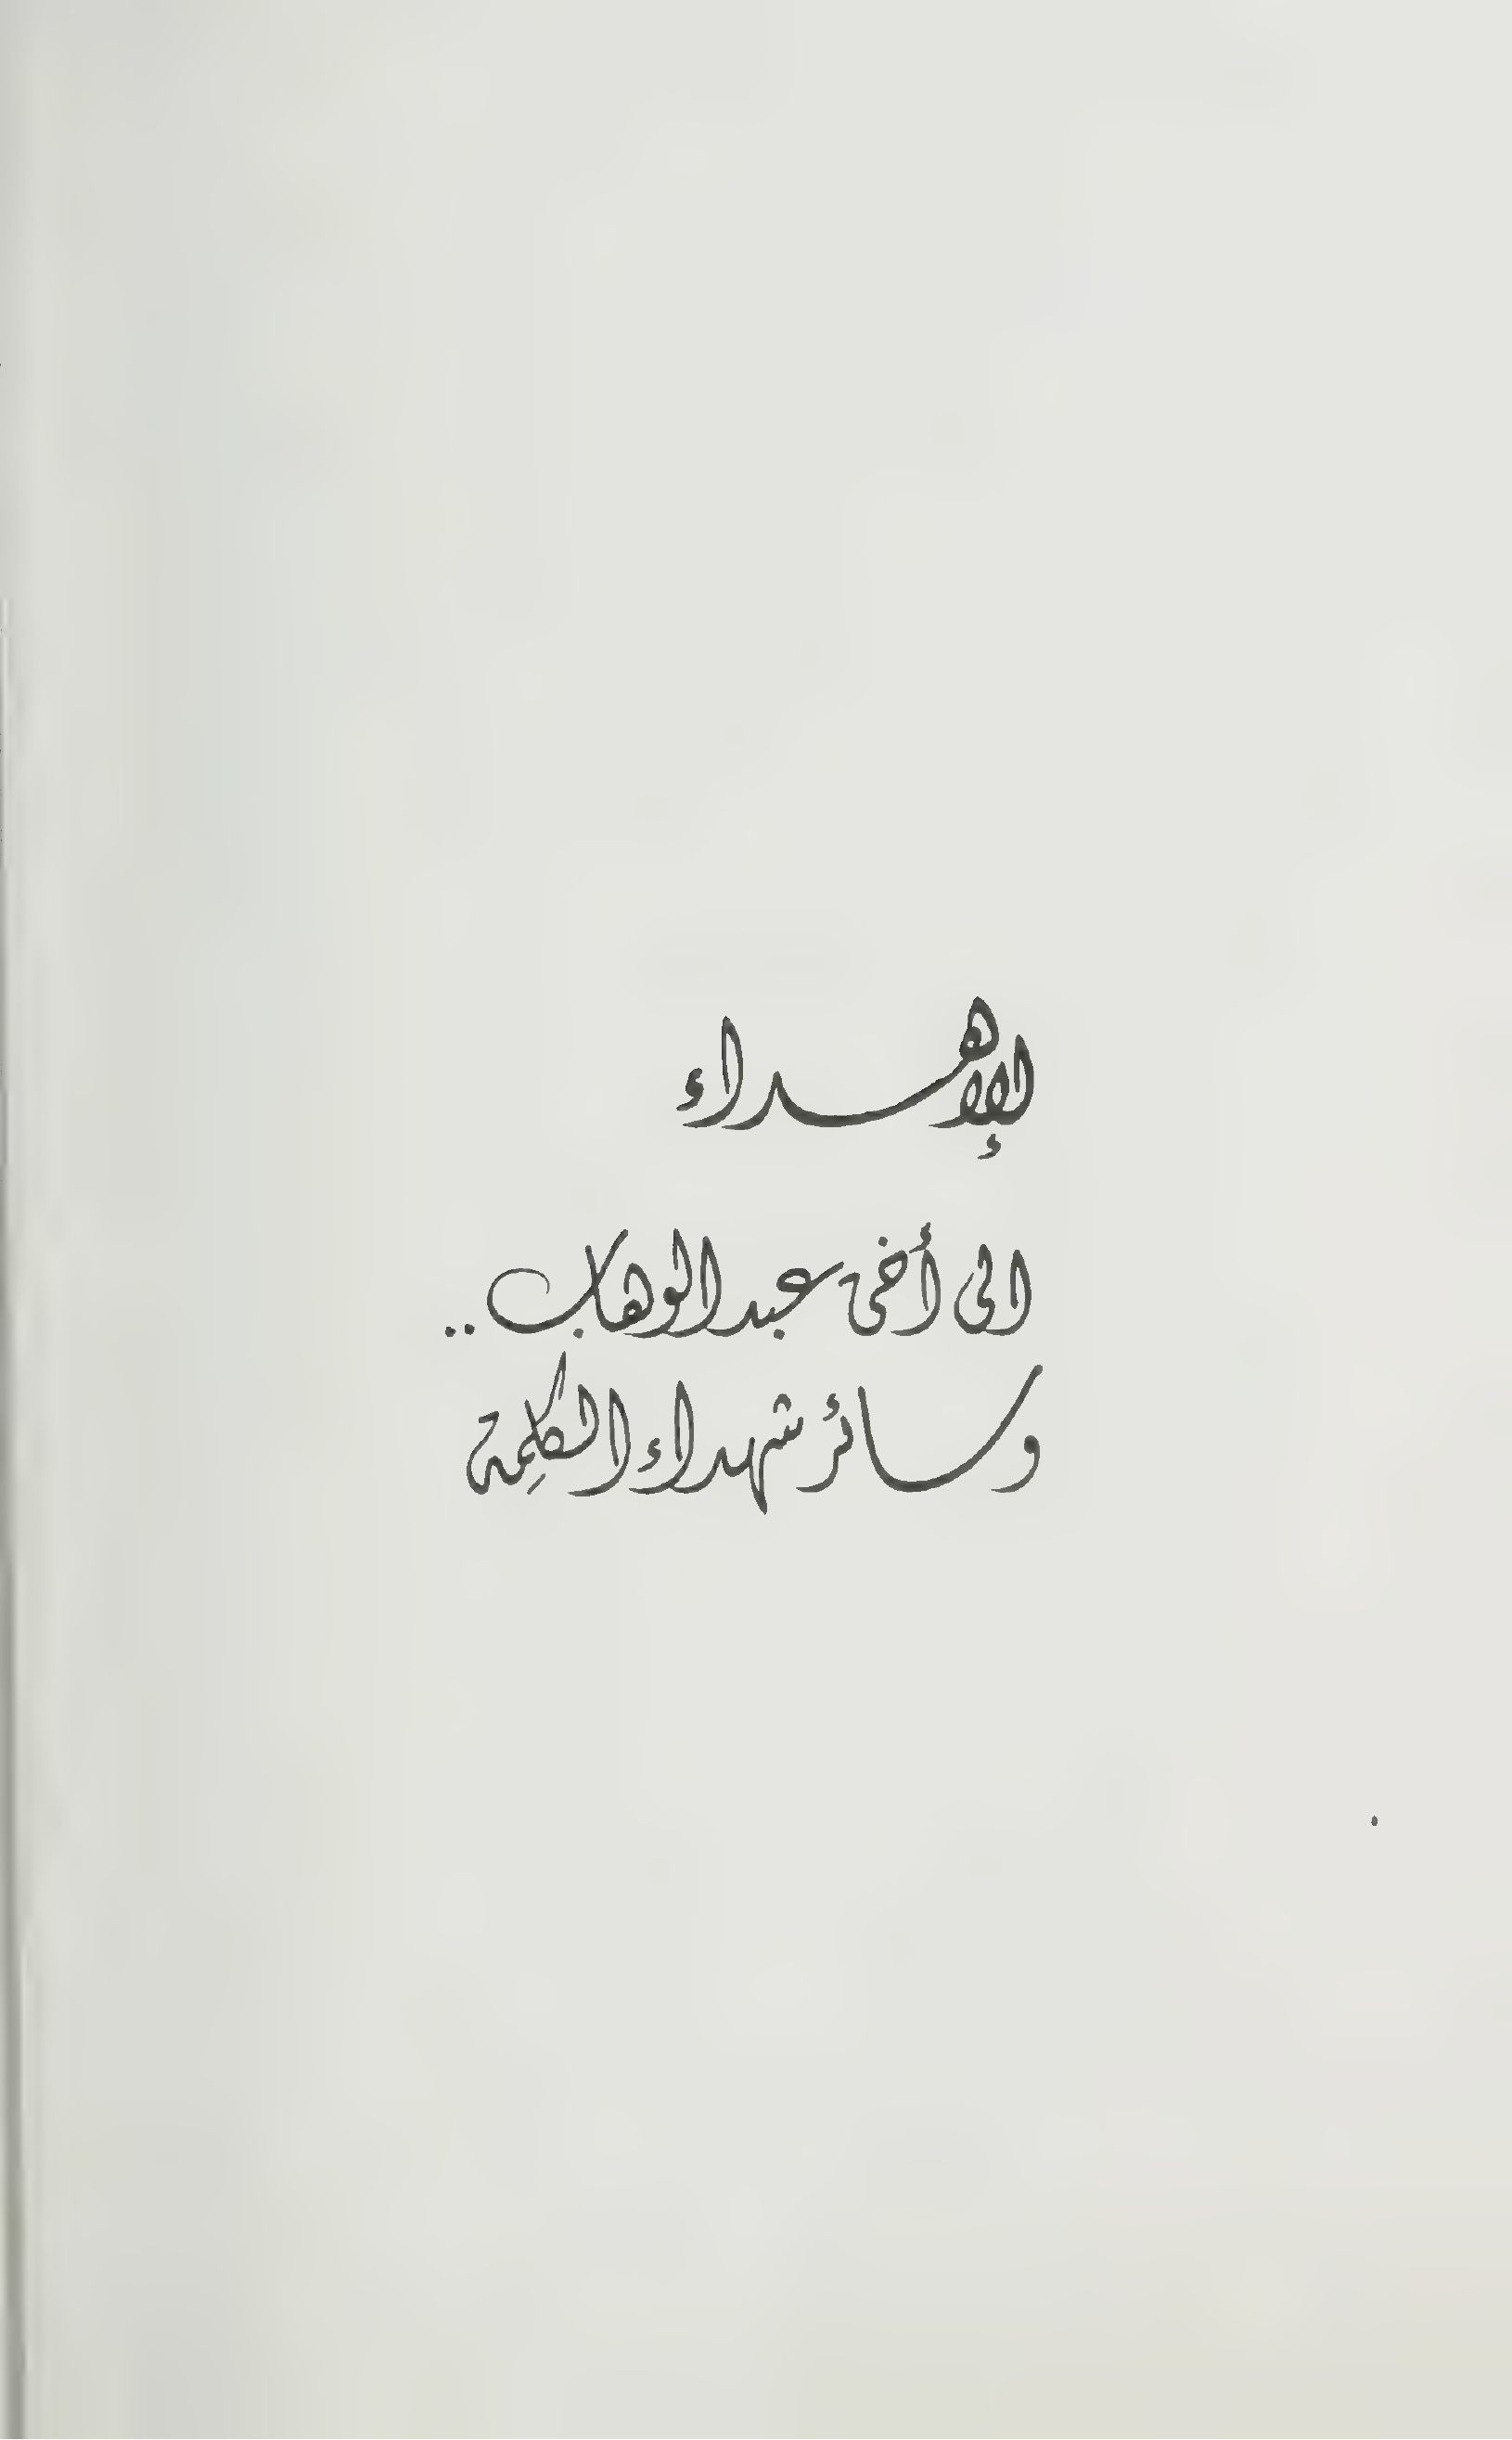 الإهداء
الى أخى عبد الوهاب ..
وسائر شهداء الكلمة